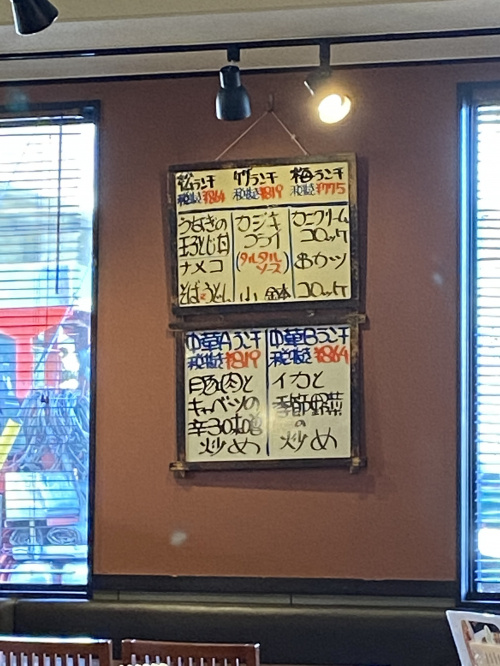 松ランチ 竹ランチ 梅ランチ
税抜¥864 税抜¥819 税抜¥775
うなぎの
玉子とじ丼
ナメコ
そば・うどん
カジキ
フライ
(タルタル
ソース)
小鉢
カニクリーム
コロッケ
おかつ
コロッケ
中華Aランチ 中華Bランチ
税抜¥819 税抜¥864
豚肉と
キャベツの
辛子味噌
炒め
イカと
季節野菜
の
炒め